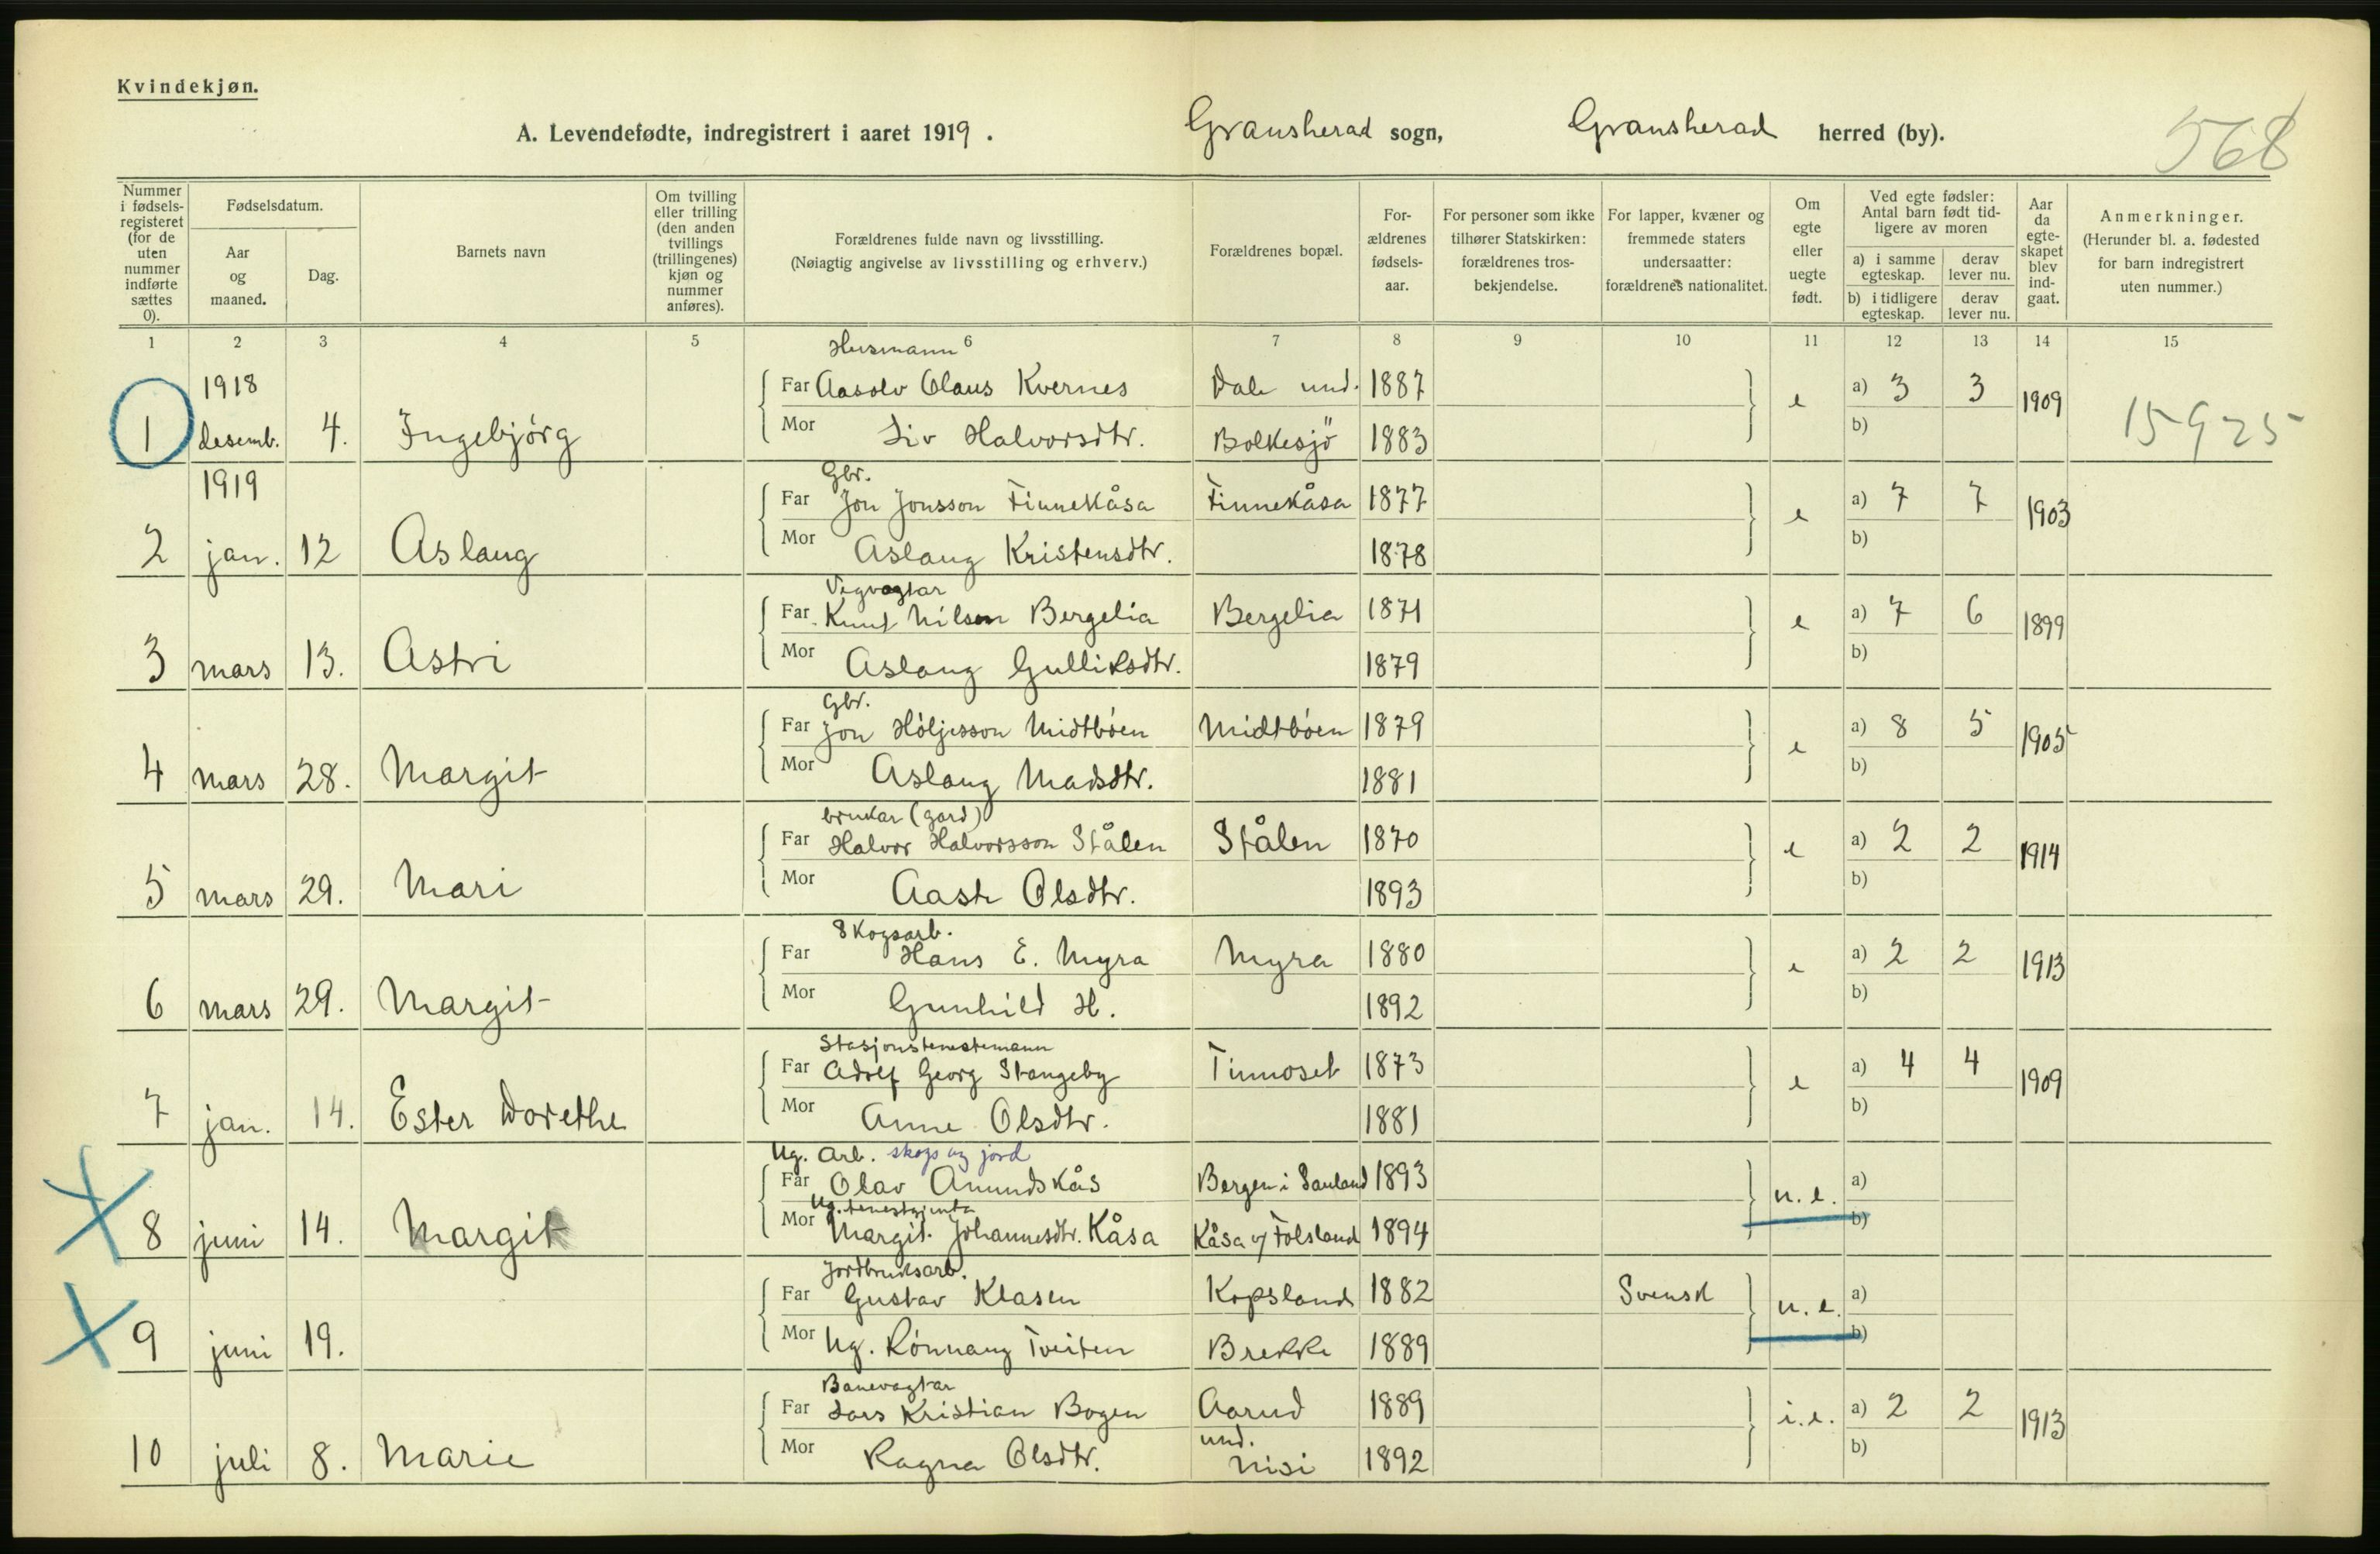 Kvindekjøn.
A. Levendefødte, indregistrert i aaret 1919.
Gransherad sogn, Gransherad herred (by).
568
Nummer i fødselsregisteret (for de uten nummer indførte sættes 0).
Fødselsdatum.
Aar og maaned.
Dag.
Barnets navn
Om tvilling eller trilling (den anden tvillings (trillingenes) kjøn og nummer anføres).
Forældrenes fulde navn og livsstilling.
(Nøiagtig angivelse av livsstilling og erhverv.)
Forældrenes bopæl.
Forældrenes fødselsaar.
For personer som ikke tilhører Statskirken: forældrenes trosbekjendelse.
For lapper, kvæner og fremmede staters undersaatter: forældrenes nationalitet.
Om egte eller uegte født.
Ved egte fødsler: Antal barn født tidligere av moren
a) i samme egteskap.
derav lever nu.
b) i tidligere egteskap.
derav lever nu.
Aar da egteskapet blev indgaat.
Anmerkninger.
(Herunder bl. a. fødested for barn indregistrert uten nummer.)
1 2 3 4 5 6 7 8 9 10 11 12 13 14 15
Husmann
1918
Far Aasolv Olaus Kvernes Dale und. 1887 a) 3 3
1 desemb. 4. Ingebjörg e 1909 15925
Mor Liv Halvorsdtr. Bolkesjö 1883 b)
1919
Gbr.
Far Jon Jonsson Finnekåsa Finnekåsa 1877 a) 7 7
2 jan. 12 Aslaug e 1903
Mor Aslaug Kristensdtr. 1878 b)
Vegvagtar
Far Knut Nilsen Bergelia Bergelia 1871 a) 7 6
3 mars 13. Astri e 1899
Mor Aslaug Gulliksdtr. 1879 b)
Gbr.
Far Jon Höljesson Midtböen Midtböen 1879 a) 8 5
4 mars 28. Margit e 1905
Mor Aslaug Madsdtr. 1881 b)
brukar (gard)
Far Halvor Halvorsson Stålen Stålen 1870 a) 2 2
5 mars 29. Mari e 1914
Mor Aaste Olsdtr. 1893 b)
Skogsarb.
Far Hans E. Myra Myra 1880 a) 2 2
6 mars 29. Margit e 1913
Mor Gunhild H. 1892 b)
Stasjonstenestemann
Far Adolf Georg Stangeby Tinnoset 1873 a) 4 4
7 jan. 14. Ester Dorethe e 1909
Mor Anne Olsdtr. 1881 b)
Ug. Arb. skogs og jord
Far Olav Amundskås Bergen i Sauland 1893 a)
8 juni 14. Margit u. e.
Ug. tenestgjenta
Mor Margit Johannesdtr. Kåsa Kåsa u/ Folsland 1894 b)
Jordbruksarb.
Far Gustav Klasen Kopsland 1882 Svensk a)
9 juni 19. u. e.
Mor Ug. Rönnaug Tveiten Brekke 1889 b)
Banevagtar
Far Lars Kristian Bogen Aarud 1889 i. e. a) 2 2
10 juli 8. Marie 1913
und.
Mor Ragna Olsdtr. Nisi 1892 b)